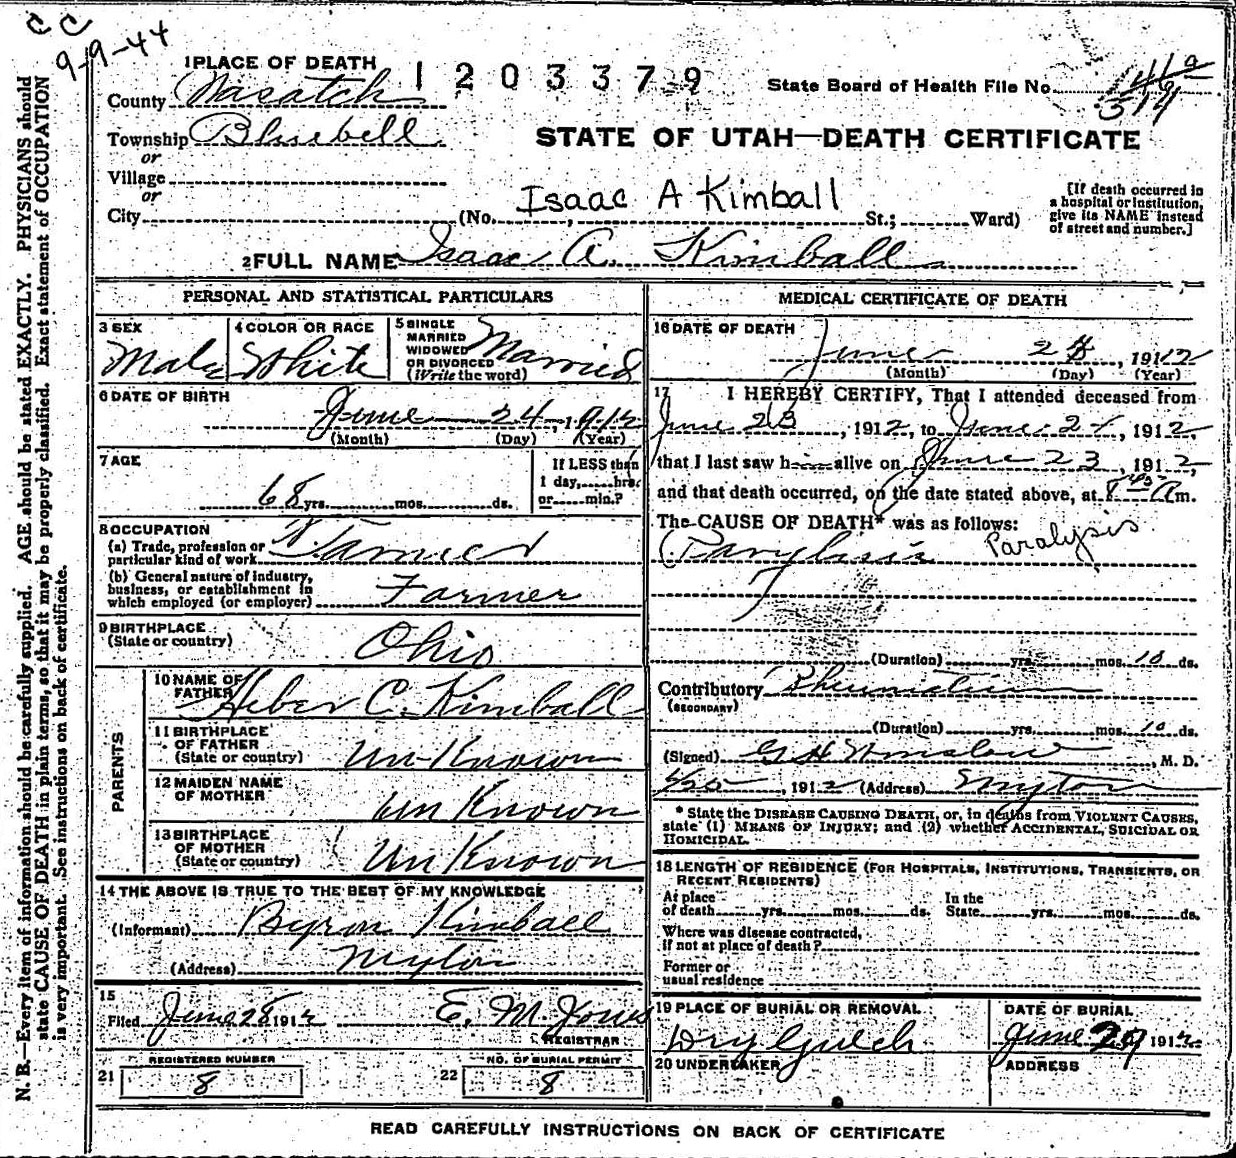 CC
9-9-44
1 PLACE OF DEATH
1203379
State Board of Health File No.
County Wasatch
Township Bluebell
or
Village
or
City (No. St.; Ward)
Isaac A Kimball
STATE OF UTAH—DEATH CERTIFICATE
[If death occurred in
a hospital or institution,
give its NAME instead
of street and number.]
2 FULL NAME Isaac A. Kimball
PERSONAL AND STATISTICAL PARTICULARS
3 SEX
Male
4 COLOR OR RACE
White
5 SINGLE
MARRIED
WIDOWED
OR DIVORCED
(Write the word)
Married
6 DATE OF BIRTH
June 24, 1912
(Month) (Day) (Year)
7 AGE
68 yrs. mos. ds.
If LESS than
1 day, hrs.
or min.?
8 OCCUPATION
(a) Trade, profession or
particular kind of work Farmer
(b) General nature of industry,
business, or establishment in
which employed (or employer) Farmer
9 BIRTHPLACE
(State or country) Ohio
PARENTS
10 NAME OF
FATHER Heber C. Kimball
11 BIRTHPLACE
OF FATHER
(State or country) Un-Known
12 MAIDEN NAME
OF MOTHER Un Known
13 BIRTHPLACE
OF MOTHER
(State or country) Un Known
14 THE ABOVE IS TRUE TO THE BEST OF MY KNOWLEDGE
(Informant) Byron Kimball
(Address) Myton
15
Filed June 28 1912 E. M. Jones
REGISTRAR
REGISTERED NUMBER
21 8
NO. OF BURIAL PERMIT
22 8
MEDICAL CERTIFICATE OF DEATH
16 DATE OF DEATH
June 24, 1912
(Month) (Day) (Year)
17 I HEREBY CERTIFY, That I attended deceased from
June 23, 1912, to June 24, 1912,
that I last saw h alive on June 23, 1912,
and that death occurred, on the date stated above, at 8 45 A m.
The CAUSE OF DEATH* was as follows:
Parylisis Paralysis
(Duration) yrs. mos. 10 ds.
Contributory Rheumatism
(SECONDARY)
(Duration) yrs. mos. 10 ds.
(Signed) G H Winslow, M. D.
6/25, 1912 (Address) Myton
* State the DISEASE CAUSING DEATH, or, in deaths from VIOLENT CAUSES,
state (1) MEANS OF INJURY; and (2) whether ACCIDENTAL, SUICIDAL OR
HOMICIDAL.
18 LENGTH OF RESIDENCE (FOR HOSPITALS, INSTITUTIONS, TRANSIENTS, OR
RECENT RESIDENTS)
At place
of death yrs. mos. ds.
In the
State yrs. mos. ds.
Where was disease contracted,
if not at place of death?
Former or
usual residence
19 PLACE OF BURIAL OR REMOVAL
Dry Gulch
DATE OF BURIAL
June 29 1912
20 UNDERTAKER
ADDRESS
READ CAREFULLY INSTRUCTIONS ON BACK OF CERTIFICATE
N. B.—Every item of information should be carefully supplied. AGE should be stated EXACTLY. PHYSICIANS should
state CAUSE OF DEATH in plain terms, so that it may be properly classified. Exact statement of OCCUPATION
is very important. See instructions on back of certificate.